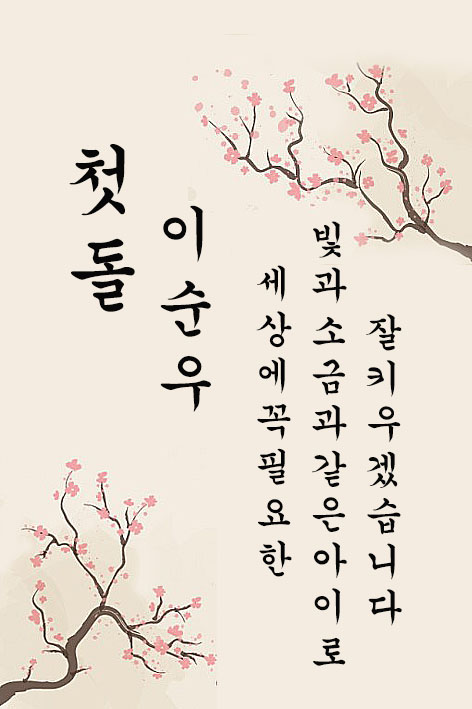 첫돌
이순우
세상에꼭필요한
빛과소금과같은아이로
잘키우겠습니다